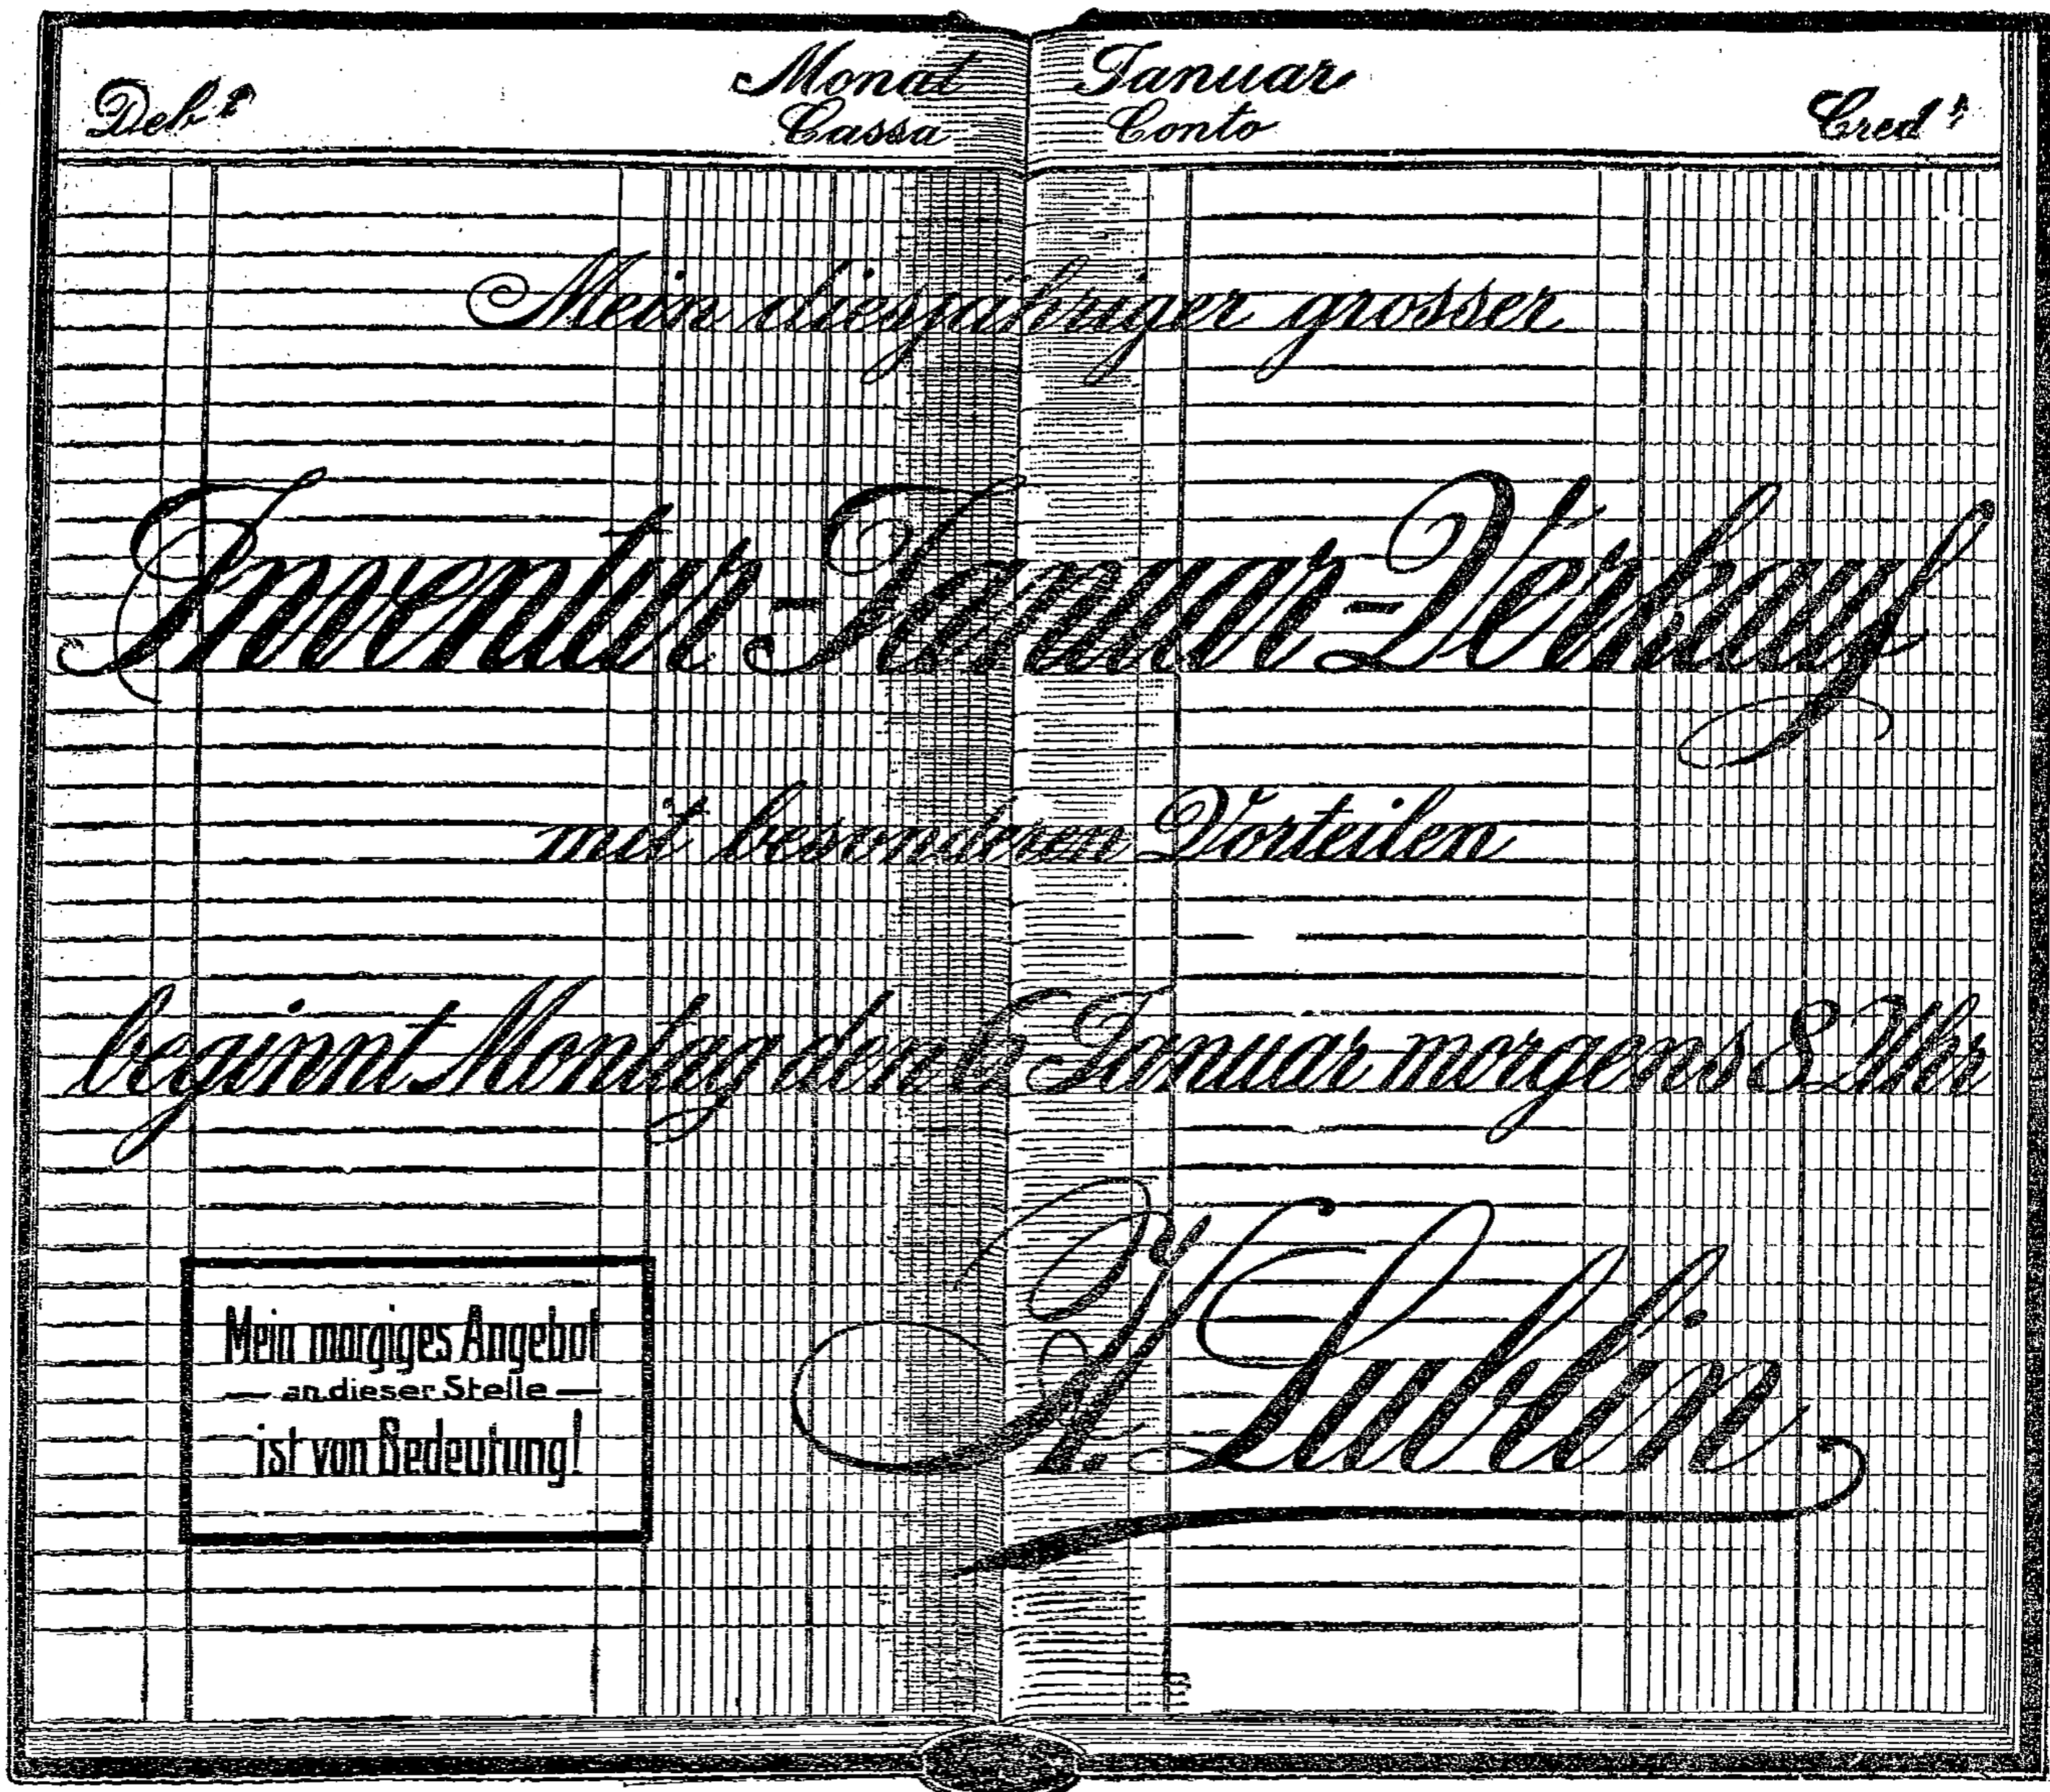 Monat Januar
Debt Cassa Conto Credt
Mein diesjähriger grosser
Inventur-Januar-Verkauf
mit besonderen Vorteilen
beginnt Montag den 6 Januar morgens 8 Uhr
Lublin
Mein morgiges Angebot
— an dieser Stelle —
ist von Bedeutung!